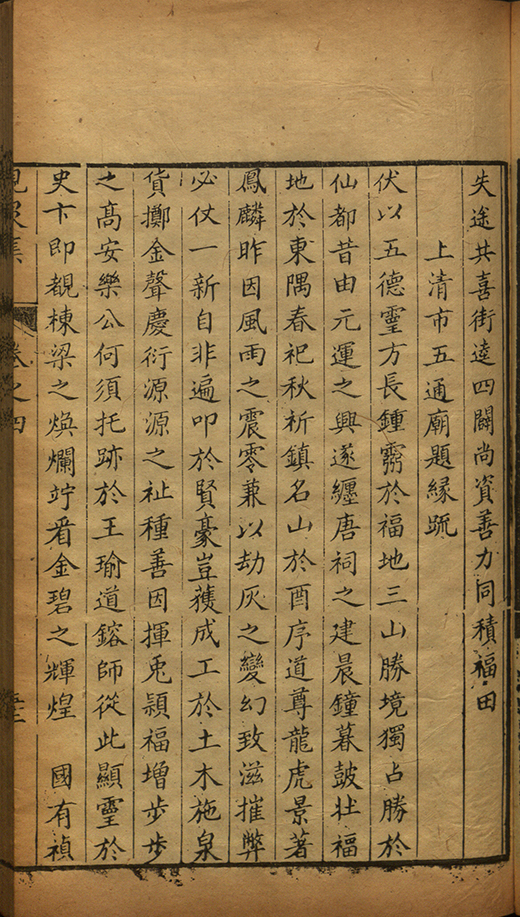 失途共喜街逵四闢尚資善力同積福田
上清市五通廟題緣疏
伏以五德靈方長鍾靈於福地三山勝境獨占勝於
仙都昔由元運之興遂纏唐祠之建晨鐘暮鼓壯福
地於東隅春祀秋祈鎮名山於酉序道尊龍虎景著
鳳麟昨因風雨之震零兼以劫灰之變幻致滋摧弊
必仗一新自非遍叩於賢豪豈獲成工於土木施泉
貨擲金聲慶衍源源之祉種善因揮兎頴福增步步
之高安樂公何須托跡於王瑜道鎔師從此顯靈於
史卞即覩棟梁之煥爛竚看金碧之輝煌　國有禎
峴泉集
卷之四